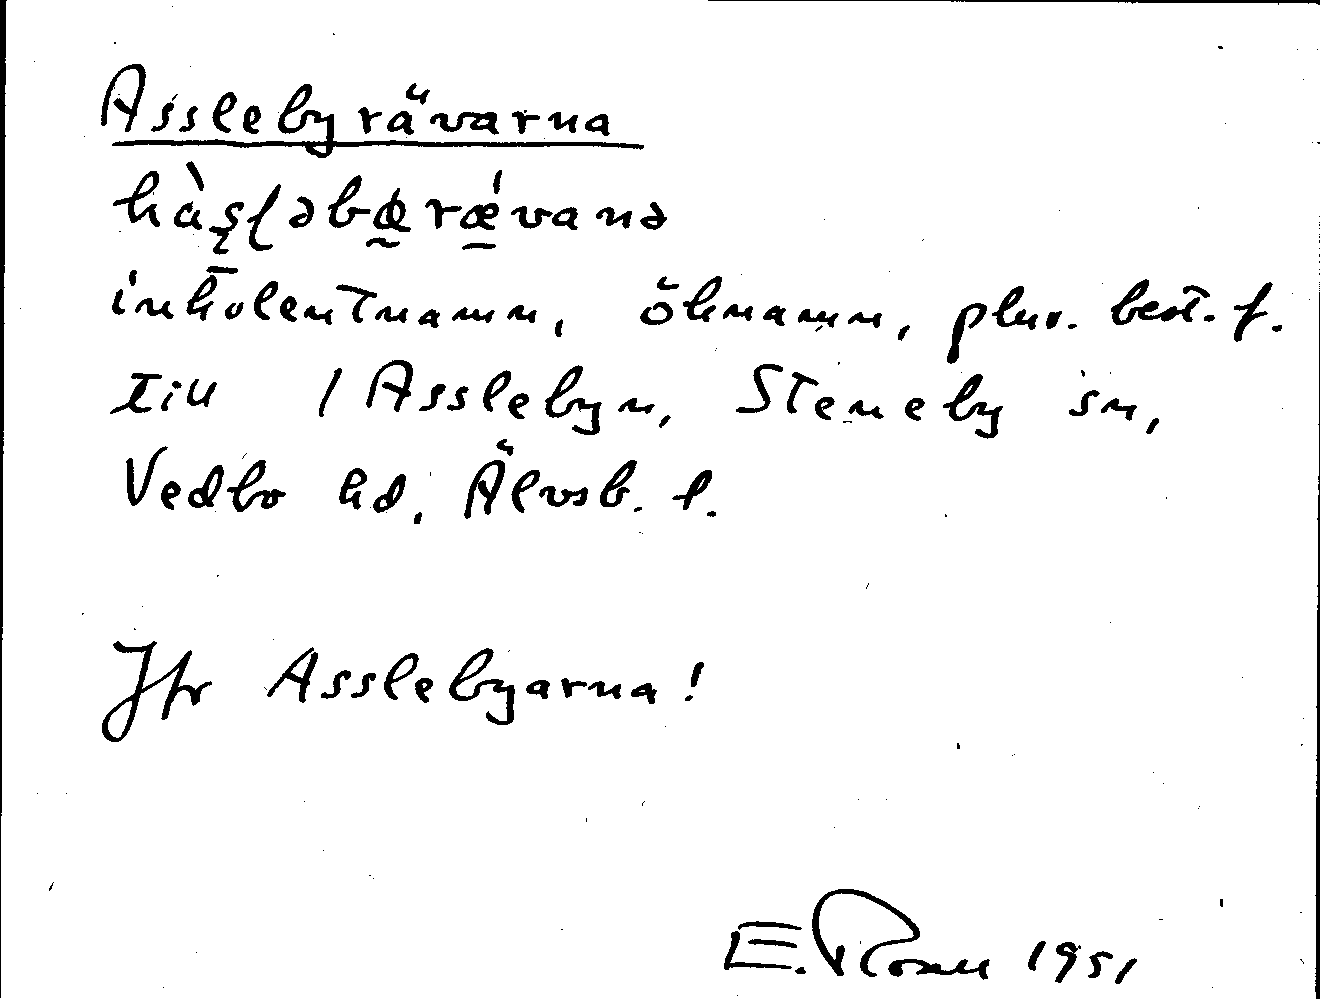 Asslebyrävarna
inkolentnamn, öknamn, plur. best. f.
till / Asslebyn, Steneby sn,
Vedbo hd. Älvsb. l.
Jfr Asslebyarna!
E. Rosell 1951